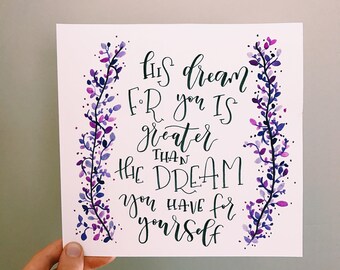 HIS dream
FOR you IS
greater
THAN
THE DREAM
you HAVE for
yourself